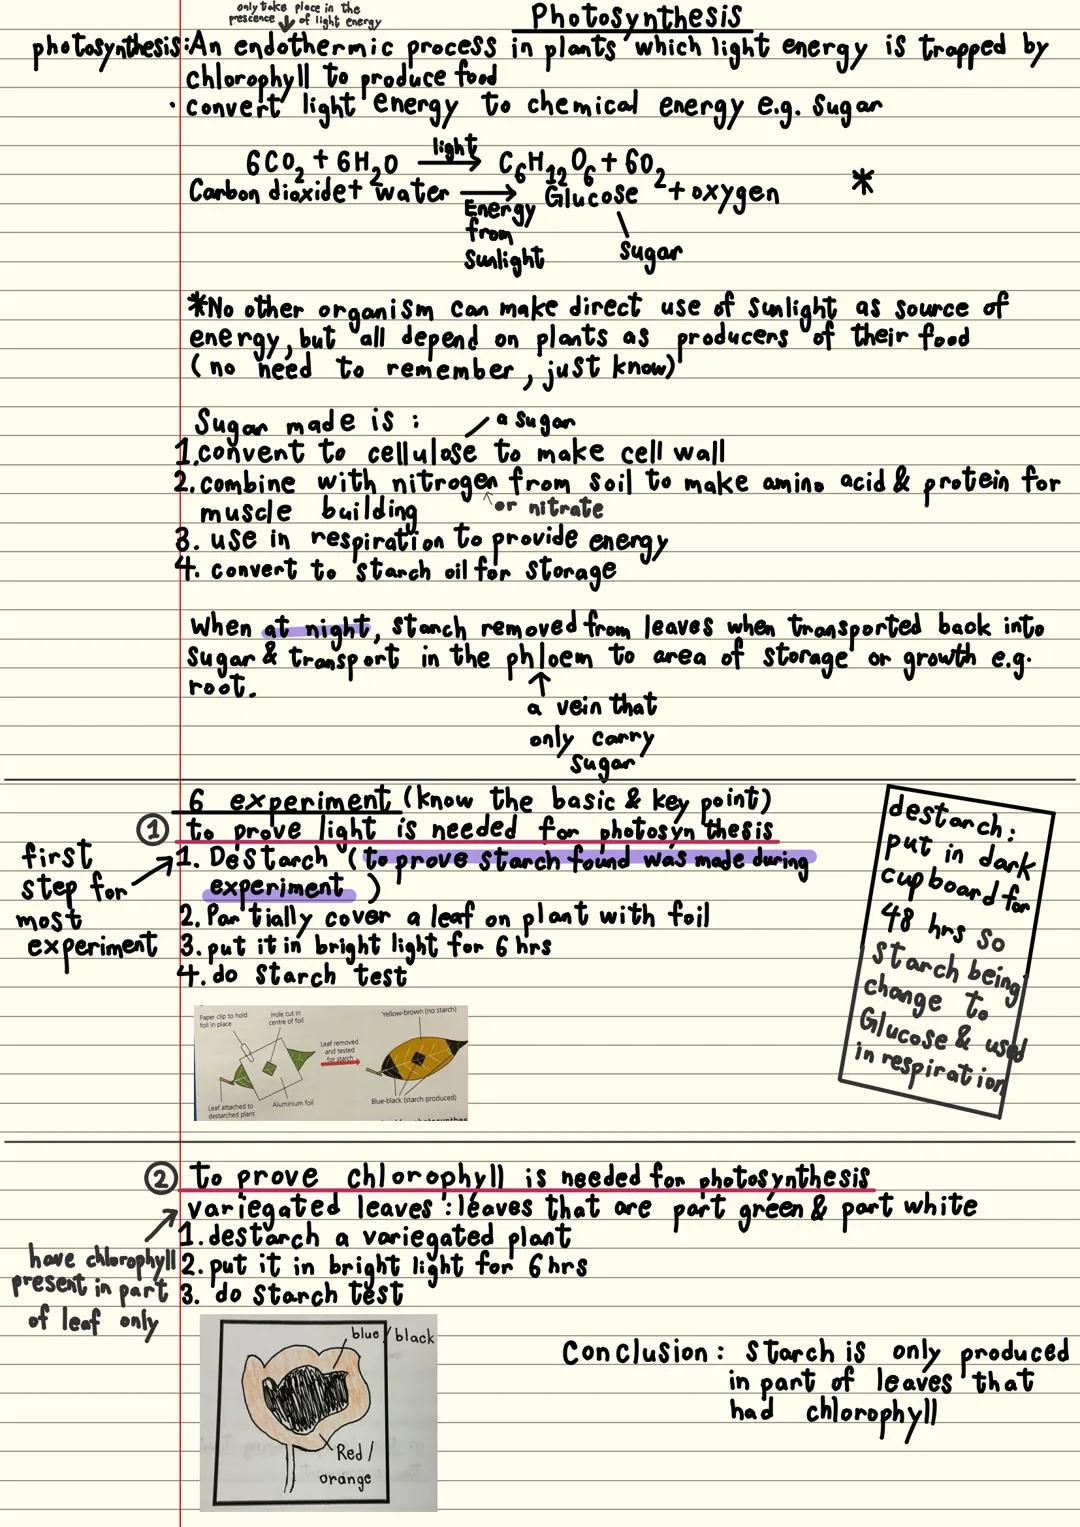 only take place in the
prescence of light energy
Photosynthesis
photosynthesis: An endothermic process in plants which light energy is trapped by
chlorophyll to produce food
• convert light energy to chemical energy e.g. sugar
6CO₂ + 6H₂O light → C₆H₁₂O₆ + 6O₂
Carbon dioxide + water → Glucose + oxygen *
Energy
from
sunlight
sugar
*No other organism can make direct use of sunlight as source of
energy, but all depend on plants as producers of their food
(no need to remember, just know)
Sugar made is :
a sugar
1. convent to cellulose to make cell wall
2. combine with nitrogen from soil to make amino acid & protein for
muscle building
or nitrate
3. use in respiration to provide energy
4. convert to starch oil for storage
When at night, starch removed from leaves when transported back into
sugar & transport in the phloem to area of storage or growth e.g.
root.
a vein that
only carry
sugar
6 experiment (know the basic & key point)
① to prove light is needed for photosynthesis
first
step for
most
experiment
1. Destarch (to prove starch found was made during
experiment)
2. Partially cover a leaf on plant with foil
3. put it in bright light for 6 hrs
4. do starch test
destarch:
put in dark
cupboard for
48 hrs so
starch being
change to
Glucose & used
in respiration
Paper clip to hold
foil in place
Hole cut in
centre of foil
Yellow-brown (no starch)
Leaf removed
and tested
for starch
Leaf attached to
destarched plant
Aluminium foil
Blue-black (starch produced)
② to prove chlorophyll is needed for photosynthesis
variegated leaves : leaves that are part green & part white
have chlorophyll
present in part
of leaf only
1. destarch a variegated plant
2. put it in bright light for 6 hrs
3. do starch test
blue / black
Red /
orange
Conclusion : starch is only produced
in part of leaves that
had chlorophyll